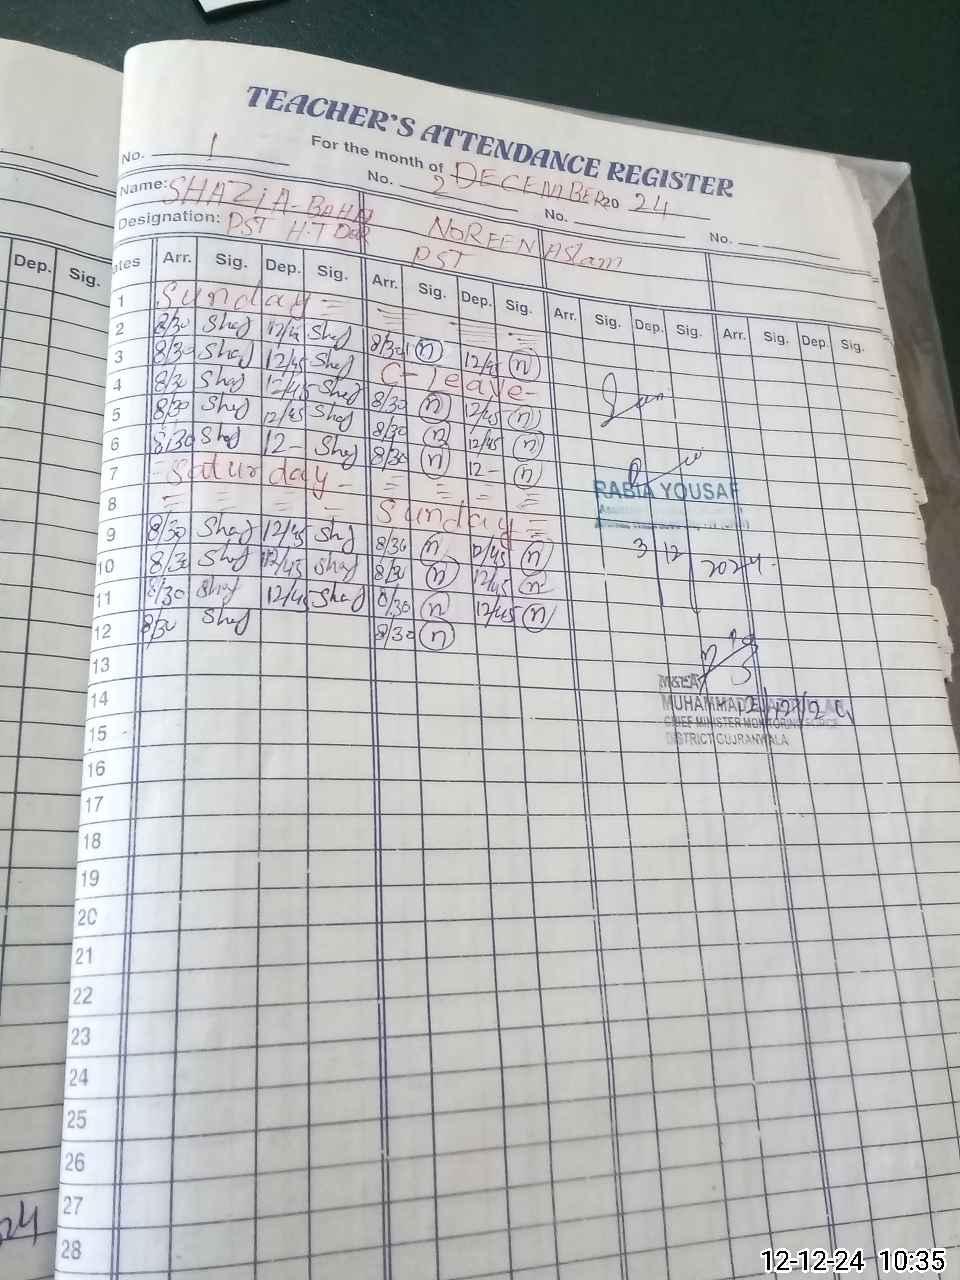 TEACHER'S ATTENDANCE REGISTER
For the month of DECEMBER 20 24
No. 1 No. 2 No. No.
Name: SHAZIA- NOREEN Aslam
Designation: PST H.T PST
Dep. Sig.
Dates Arr. Sig. Dep. Sig. Arr. Sig. Dep. Sig. Arr. Sig. Dep. Sig. Arr. Sig. Dep. Sig.
1 Sunday =
2 8/30 Shaz 12/45 Shaz 8/30 n 12/45 n
3 8/30 Shaz 12/45 Shaz C-leave-
4 8/30 Shaz 12/45 Shaz 8/30 n 12/45 n
5 8/30 Shaz 12/45 Shaz 8/30 n 12/45 n
6 8/30 Shaz 12- Shaz 8/30 n 12- n
7 - Saturday -
8 Sunday =
9 8/30 Shaz 12/45 Shaz 8/30 n 12/45 n
10 8/30 Shaz 12/45 Shaz 8/30 n 12/45 n
11 8/30 Shaz 12/45 Shaz 8/30 n 12/45 n
12 8/30 Shaz 8/30 n
RABIA YOUSAF
3 12 2024
MUHAMMAD
CHIEF MINISTER MONITORING FORCE
DISTRICT GUJRANWALA
13
14
15
16
17
18
19
20
21
22
23
24
25
26
27
28
24
12-12-24 10:35